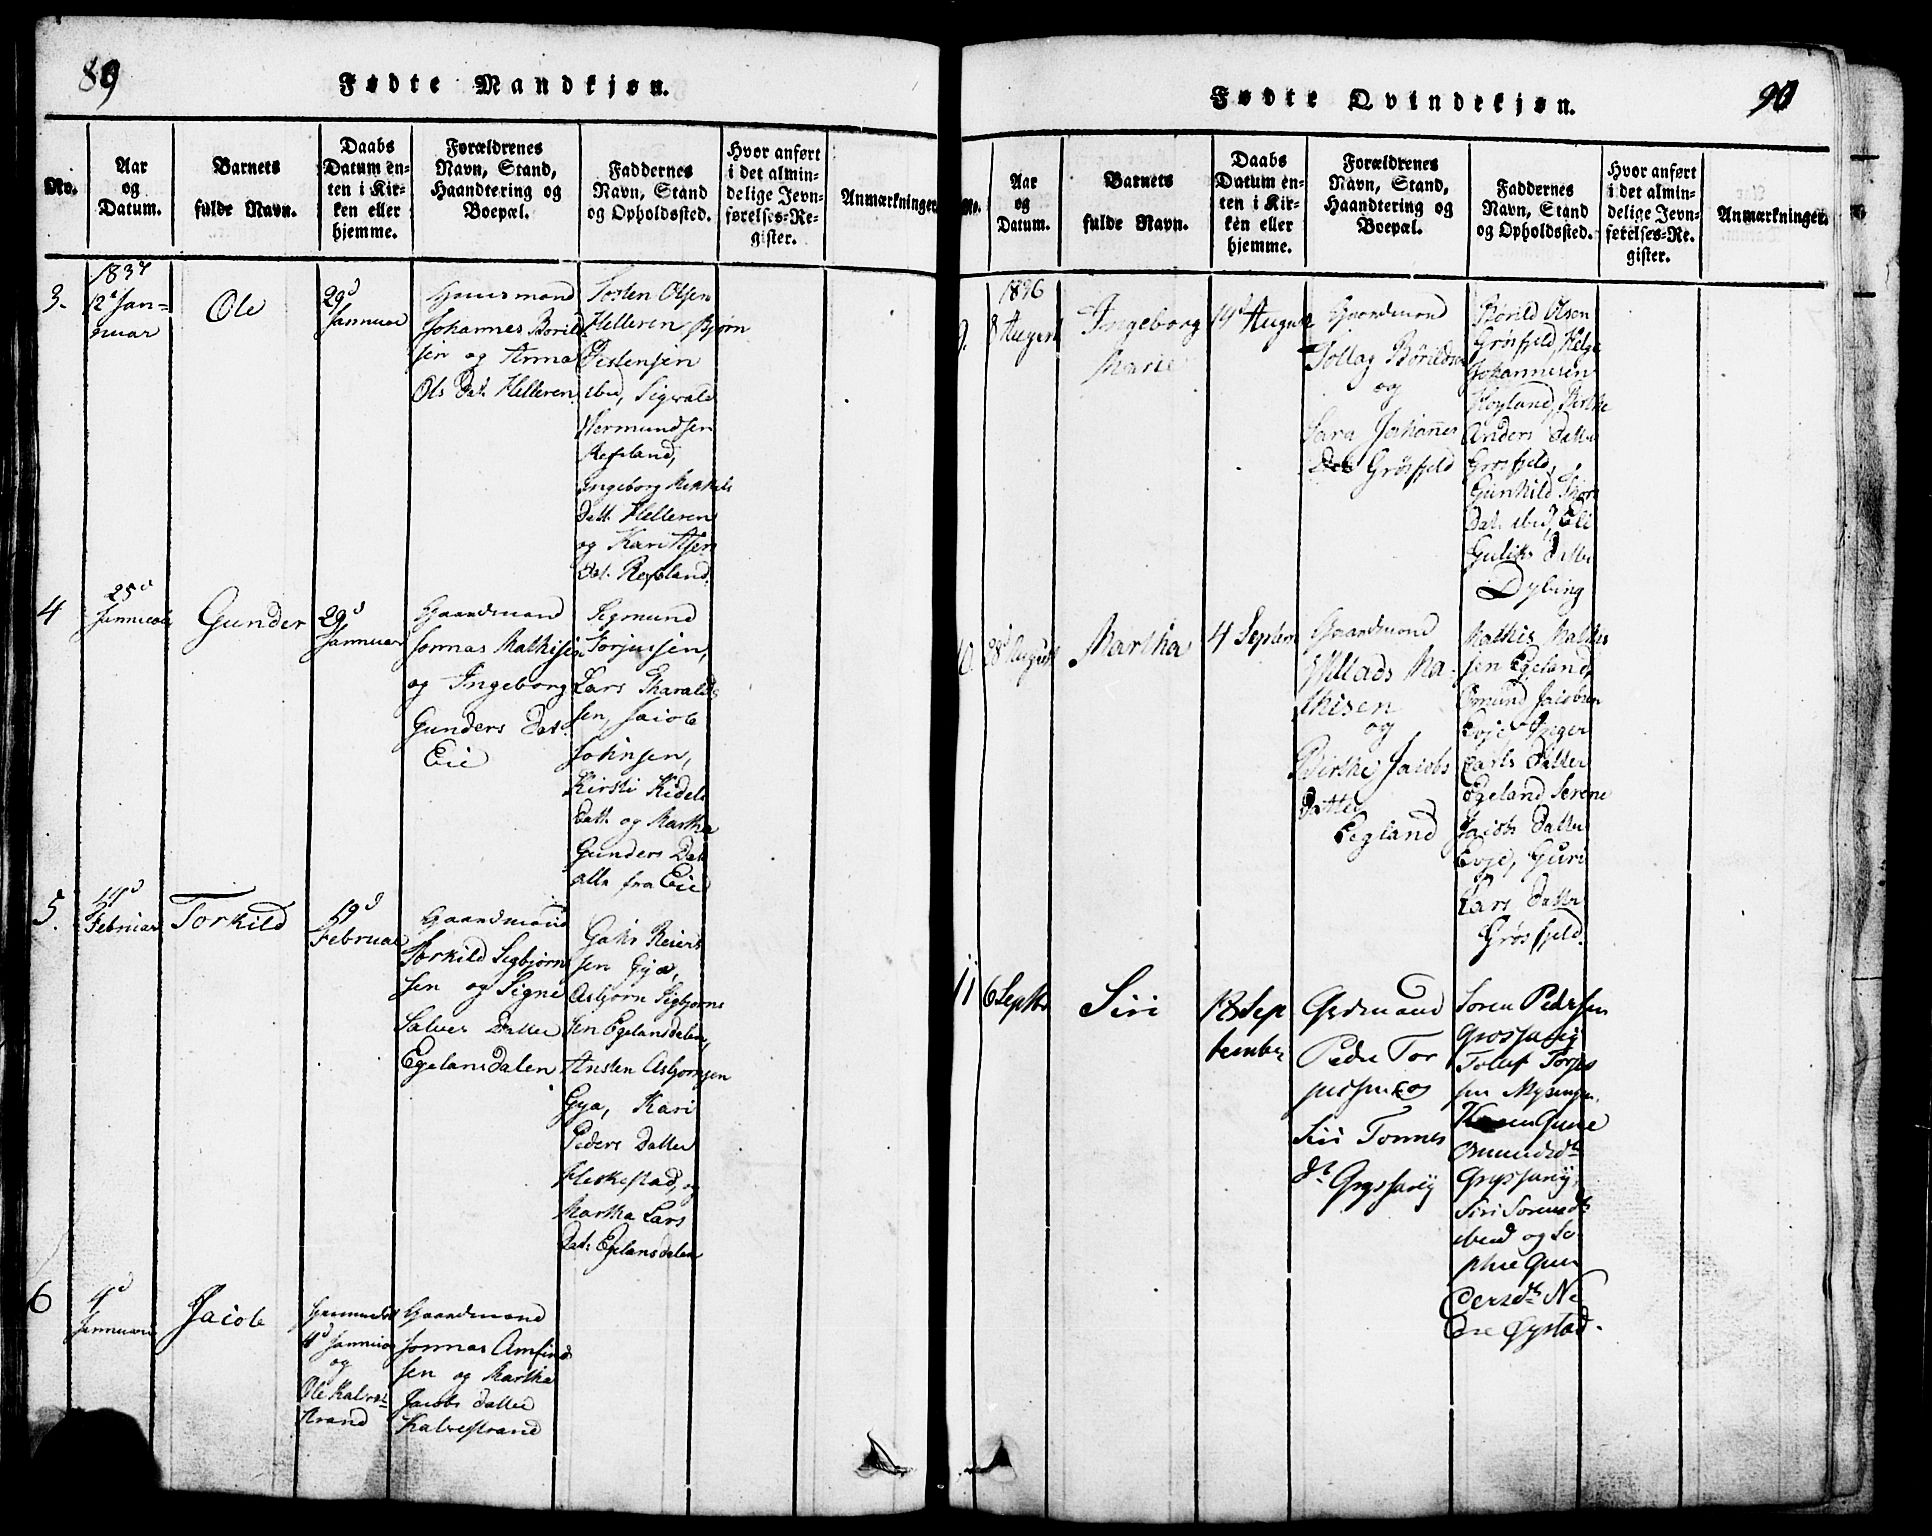 89
Fødte Mandkjøn.
No.
Aar
og
Datum.
Barnets
fulde Navn.
Daabs
Datum en-
ten i Kir-
ken eller
hjemme.
Forældrenes
Navn, Stand,
Haandtering og
Boepæl.
Faddernes
Navn, Stand
og Opholdssted.
Hvor anført
i det almin-
delige Jevn-
førelses-Re-
gister.
Anmærkninger.
3.
1837
12te Jan-
nuar
Ole
29d
Jannuar
Huusmand
Johannes Borild
sen og Anna
Ols Dat. Helleren
Tosten Olsen
Helleren, Bjørn
Testensen
ibd, Sigvald
Wermundsen
Refsland,
Ingeborg Mikkels
Datt. Helleren
og Kari
Dat. Refsland.
4
25d
Jannuar
Gunder
29d
Jannuar
Gaardmand
Jonnas Mathisen
og Ingeborg
Gunders Dat.
Eie
Sigmund
Torjussen,
Lars Tharalds
sen, Jacob
Johnsen,
Kirsti Kidels
Datt. og Martha
Gunders Dat
alle fra Eie
5.
Februar
Torkild
19d
Februar
Gaardmand
Torkild Segbjørn
sen og Signe
Salves Datter
Egelandsdalen
Reiers
sen Gya,
Asbjørn Sigbjørns
sen Egelansdalen,
Ansten Asbjørnsen
Gya, Kari
Peders Datter
Fleskestad, og
Martha Lars
Dat. Egelansdalen
6
4d
Jannuari
Jacob
Hjemmedøbt
4d Jannuar
og
Ole Kalve-
strand
Gaardmand
Jonnas Amfind
sen og Martha
Jacobs Datter
Kalvestrand
Fødte Qvindekjøn.
90
No.
Aar
og
Datum.
Barnets
fulde Navn.
Daabs
Datum en-
ten i Kir-
ken eller
hjemme.
Forældrenes
Navn, Stand,
Haandtering og
Boepæl.
Faddernes
Navn, Stand
og Opholdssted.
Hvor anført
i det almin-
delige Jevn-
førelses-Re-
gister.
Anmærkninger.
9.
1836
8 August
Ingeborg
Marie
14d August
Gaardmand
Tollag Børildsen
og
Sara Johannes
Dat. Grøsfjeld
Børild Olsen
Grøsfjeld, Helge
Johannesen
Høyland, Birthe
Anders Datter
Grøsfjeld,
Gunhild
Dat. ibd, Eli
Guliks Datter
Dybing
10
28d August
Martha
4 Septem
Gaardmand
Ma-
thisen
og
Birthe Jacobs
Datter
Eegland
Mathis Mathis
sen Egeland,
Omund Jacobsen
Evje, Inger
Carls Datter
Egeland, Serene
Jacobs Datter
Evje, Guri
Lars Datter
Grøsfjeld.
11
6 Septbr
Siri
18 Sep
tember
Grdmand
Peder Tor
jusen og
Siri Tonnes
dt.
Soren Pedersen
Tollef Torjes
sen
Omundsdt.
Siri Sorensdt.
ibid og So
phie Gun
dersdt. Ne
dre Øystad.